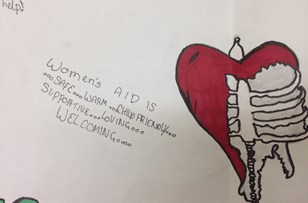 help?
Women's AID IS
...SAFE...WARM...CHILD FRIENDLY...
SUPPORTIVE...LOVING...
WELCOMING....